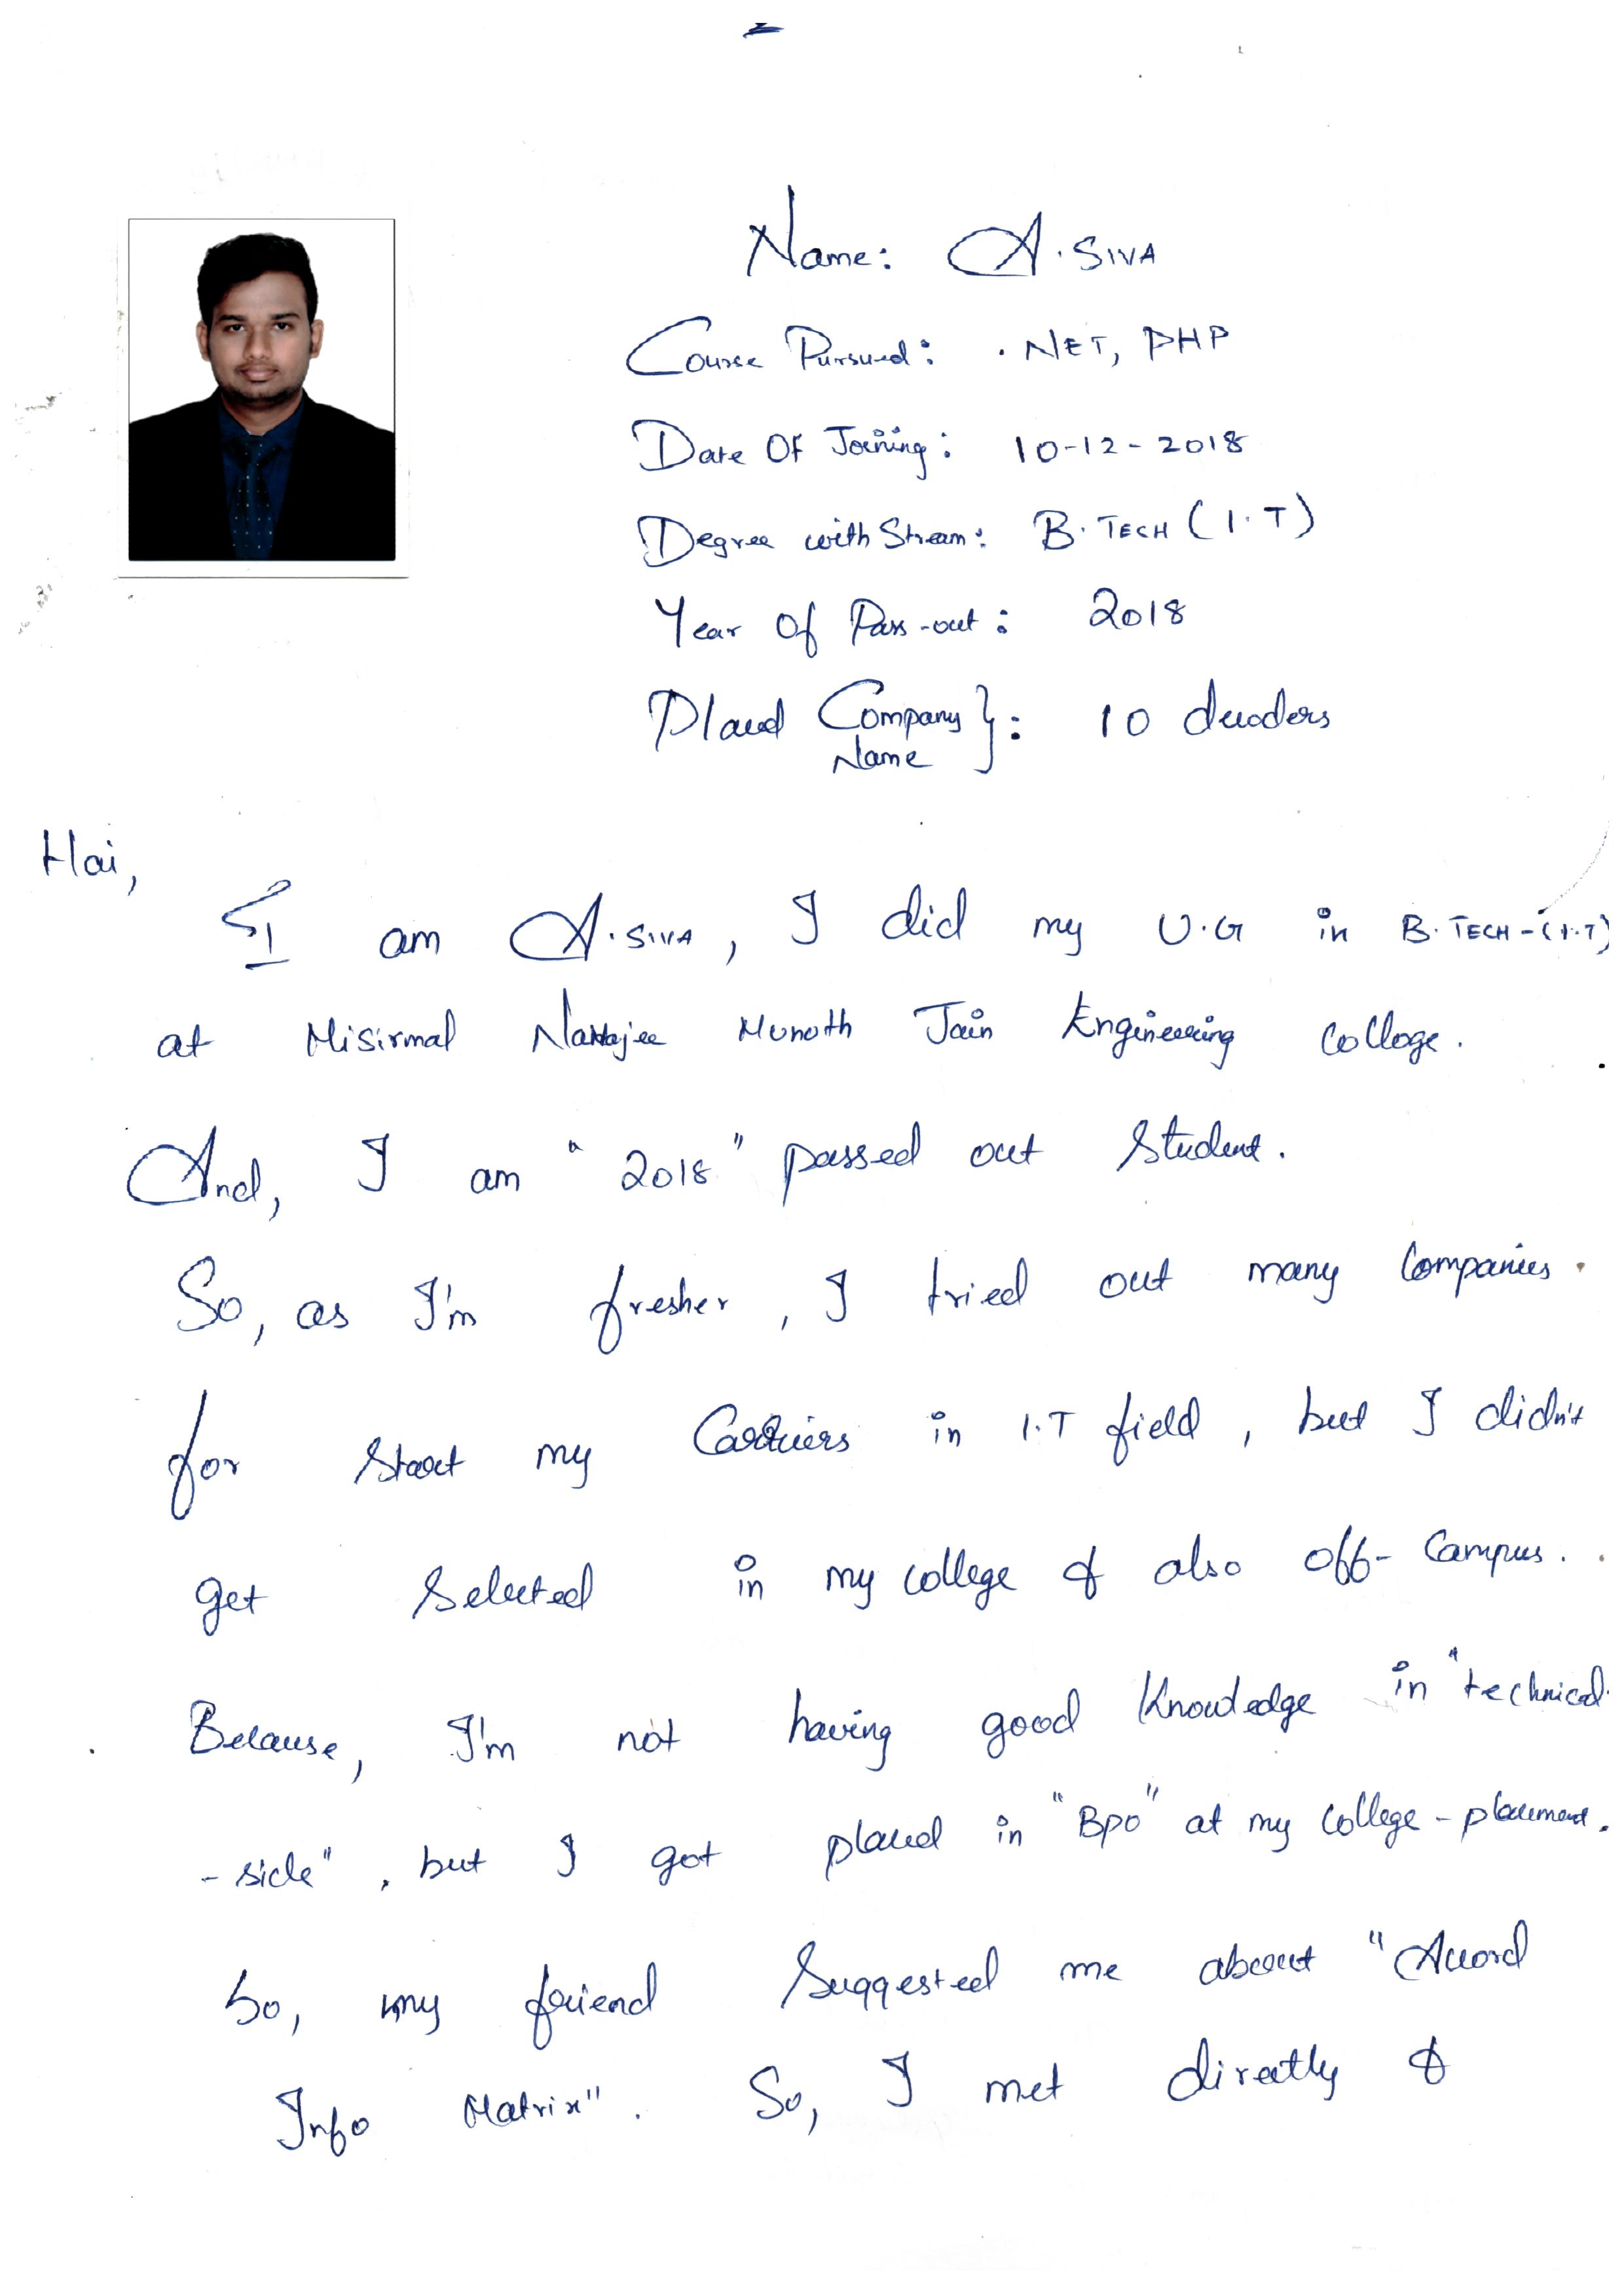 Name: A. SIVA
Course Pursued: .NET, PHP
Date Of Joining: 10-12-2018
Degree with Stream: B.TECH (I.T)
Year Of Pass-out: 2018
Placed Company Name}: 10 decoders
Hai,
I am A. SIVA, I did my U.G in B.TECH-(I.T)
at Misirmal Navajee Munoth Jain Engineering College.
And, I am "2018" passed out Student.
So, as I'm fresher, I tried out many Companies.
for Start my Carriers in I.T field, but I didn't
get Selected in my college & also off-Campus.
Because, I'm not having good Knowledge in "technical
-side", but I got placed in "Bpo" at my College-placement.
So, my friend Suggested me about "Accord
Info Matrix". So, I met directly &